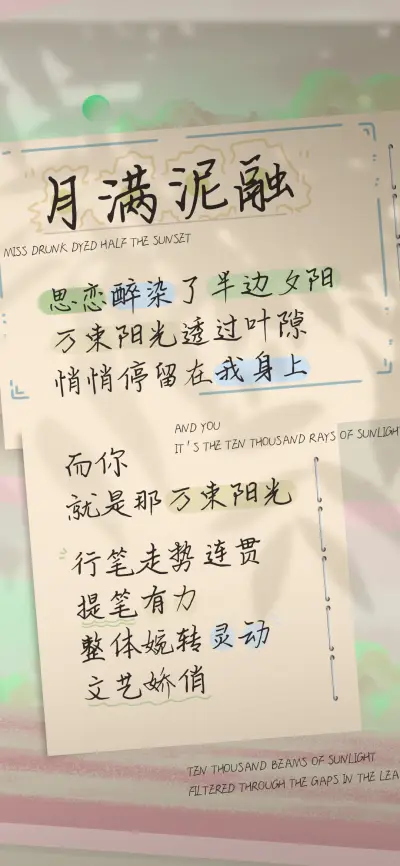 月满泥融
MISS DRUNK DYED HALF THE SUNSET
思恋醉染了半边夕阳
万束阳光透过叶隙
悄悄停留在我身上
AND YOU
IT'S THE TEN THOUSAND RAYS OF SUNLIGH
而你
就是那万束阳光
行笔走势连贯
提笔有力
整体婉转灵动
文艺娇俏
TEN THOUSAND BEAMS OF SUNLIGHT
FILTERED THROUGH THE GAPS IN THE LEA